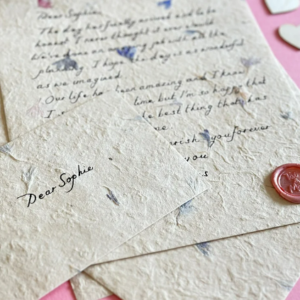 Dear Sophie,
The day has finally arrived and to be
honest I never thought it ever would
done an amazing job with all the
I hope the day is as wonderful
as we imagined.
Our life has been amazing and I know that
time but I'm so happy that
best thing that's has
me.
cherish you forever
you
Dear Sophie